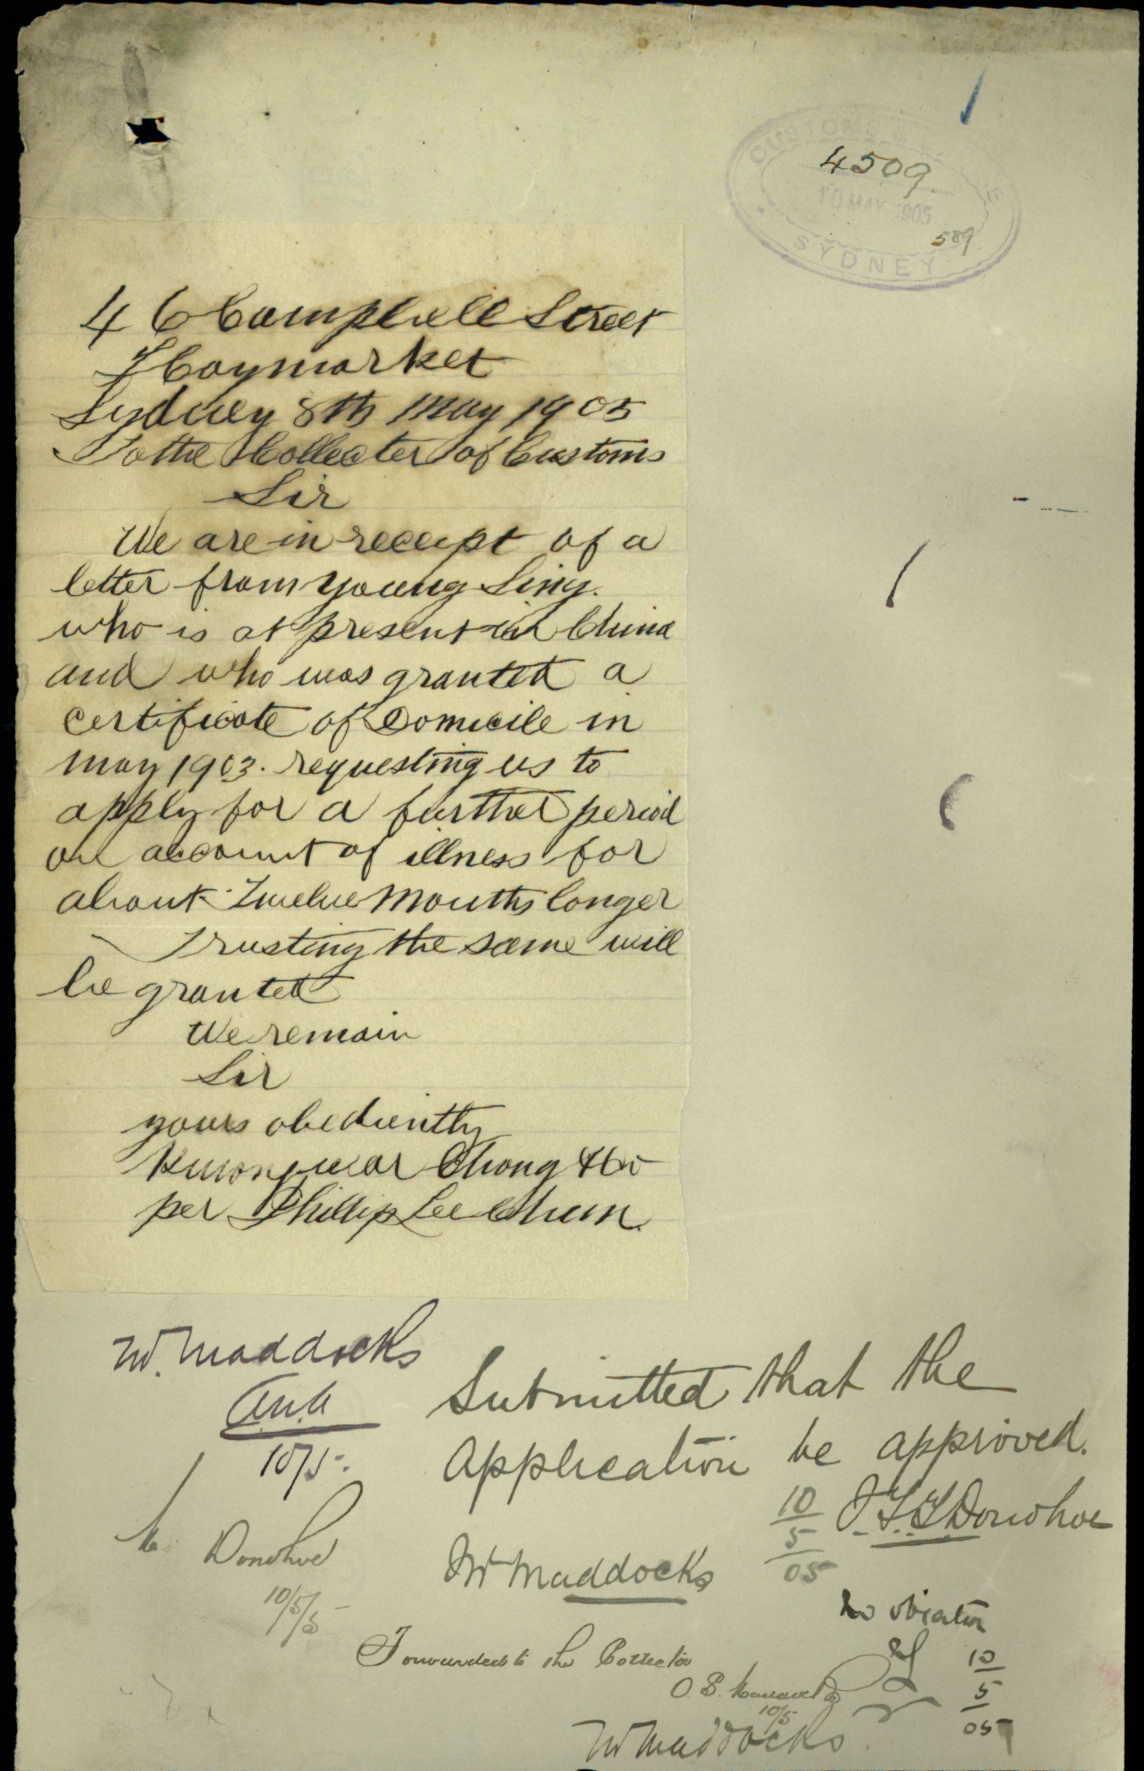 CUSTOMS
4509
10 MAY 1905
589
SYDNEY
46 Campbell Street
Haymarket
Sydney 8th May 1905
To the Collecter of Customs
Sir
We are in receipt of a
letter from Young Sing.
who is at present in China
and who was granted a
certificate of Domicile in
May 1903. requesting us to
apply for a further period
on account of illness for
about Twelve Months longer
Trusting the same will
be granted
We remain
Sir
yours obediently
Kwong War Chong & Co
per Phillip Lee Chun.
Mr. Maddocks
10/5.
Submitted that the
application be approved.
J.T.T. Donohoe
10
5
05
Mr Donohoe
10/5/5
Mr Maddocks
No objection
10
5
05
Forwarded to the Collector
10/5
Mr Maddocks